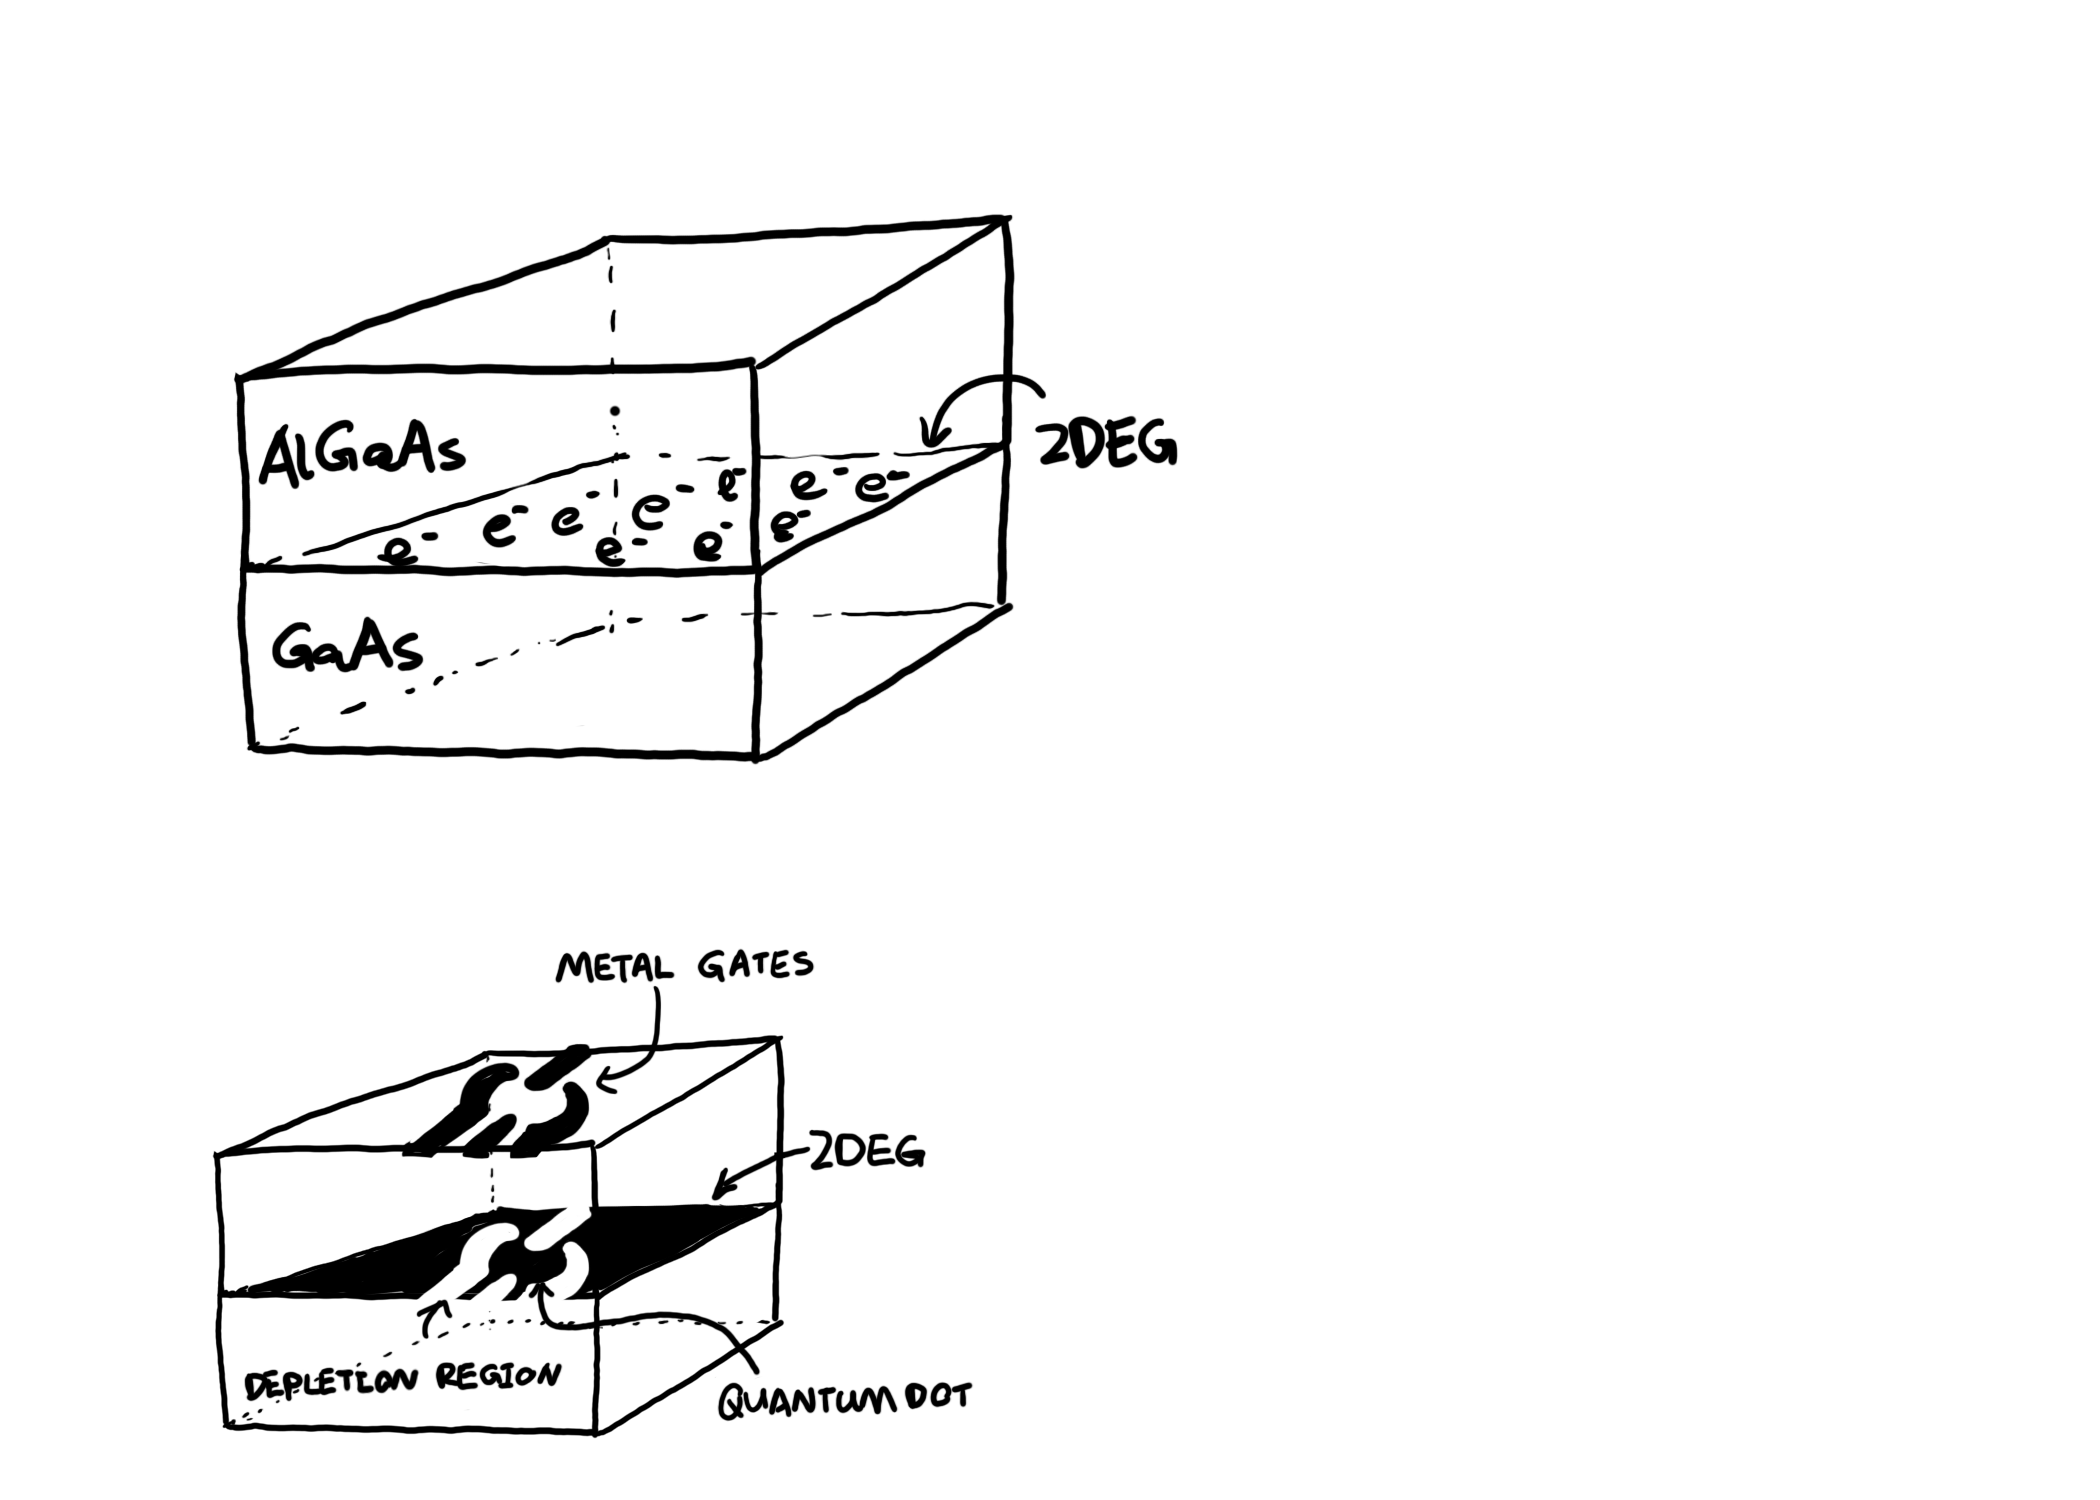 AlGaAs
2DEG
e⁻ e⁻ e⁻
e⁻ e⁻ e⁻ e⁻
e⁻ e⁻ e⁻
GaAs
METAL GATES
2DEG
DEPLETION REGION
QUANTUM DOT